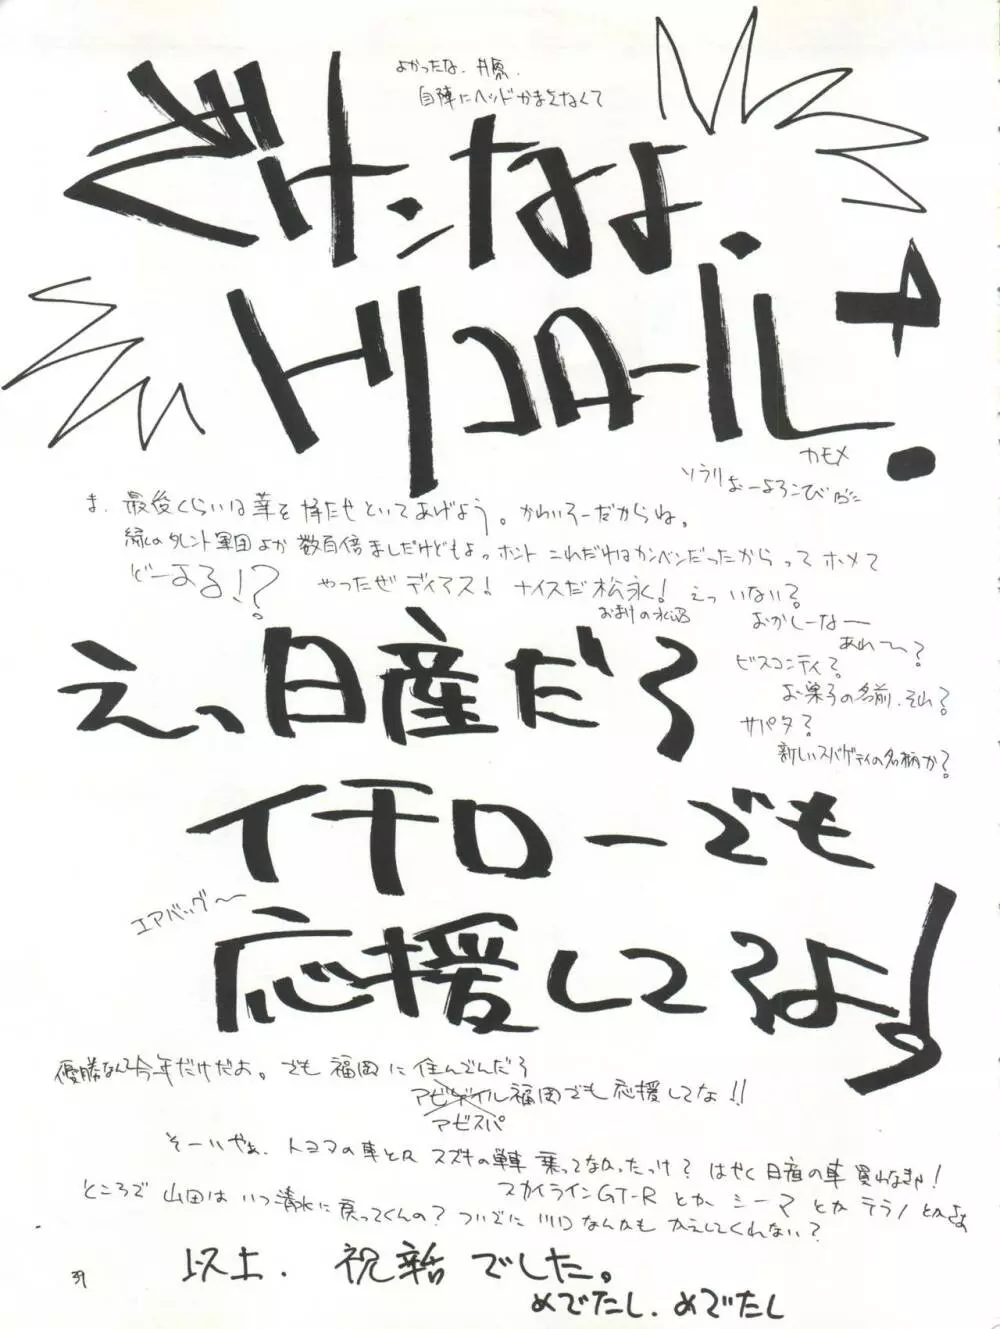 よかったな、井原。
自陣にヘッドかまえなくて
ざけんなよ、
トリコロール!
カモメ
ソラリ
よーよろこび
ま、最後くらいは華を持たせといてあげよう。かわいそーだからね。
緑のタレント軍団よか数百倍ましだけどもよ。ホント これだけはカンベンだったからってホメて
どーする!?
やったぜ ディアス! ナイスだ松永! えっ いない?
おまけの水沼
おかしーなー
あれ〜?
ビスコンティ?
お菓子の名前、それ?
サパタ?
新しいスパゲティの名柄か?
えっ、日産だろ
イチローでも
エアバッグ〜
応援してろよ!
優勝なんて今年だけだよ。でも 福岡に 住んでんだろ
福岡でも 応援してな!!
アビスパ
そーいやぁ、トヨタの車とか スズキの単車 乗ってなかったっけ? はやく 日産の車 買わなきゃ!
スカイラインGT-R とか シーマ とか テラノ とかよぉ
ところで 山田は いつ清水に戻ってくんの? ついでに 川口なんかも かえしてくれない?
以上、祝辞でした。
めでたし、めでたし